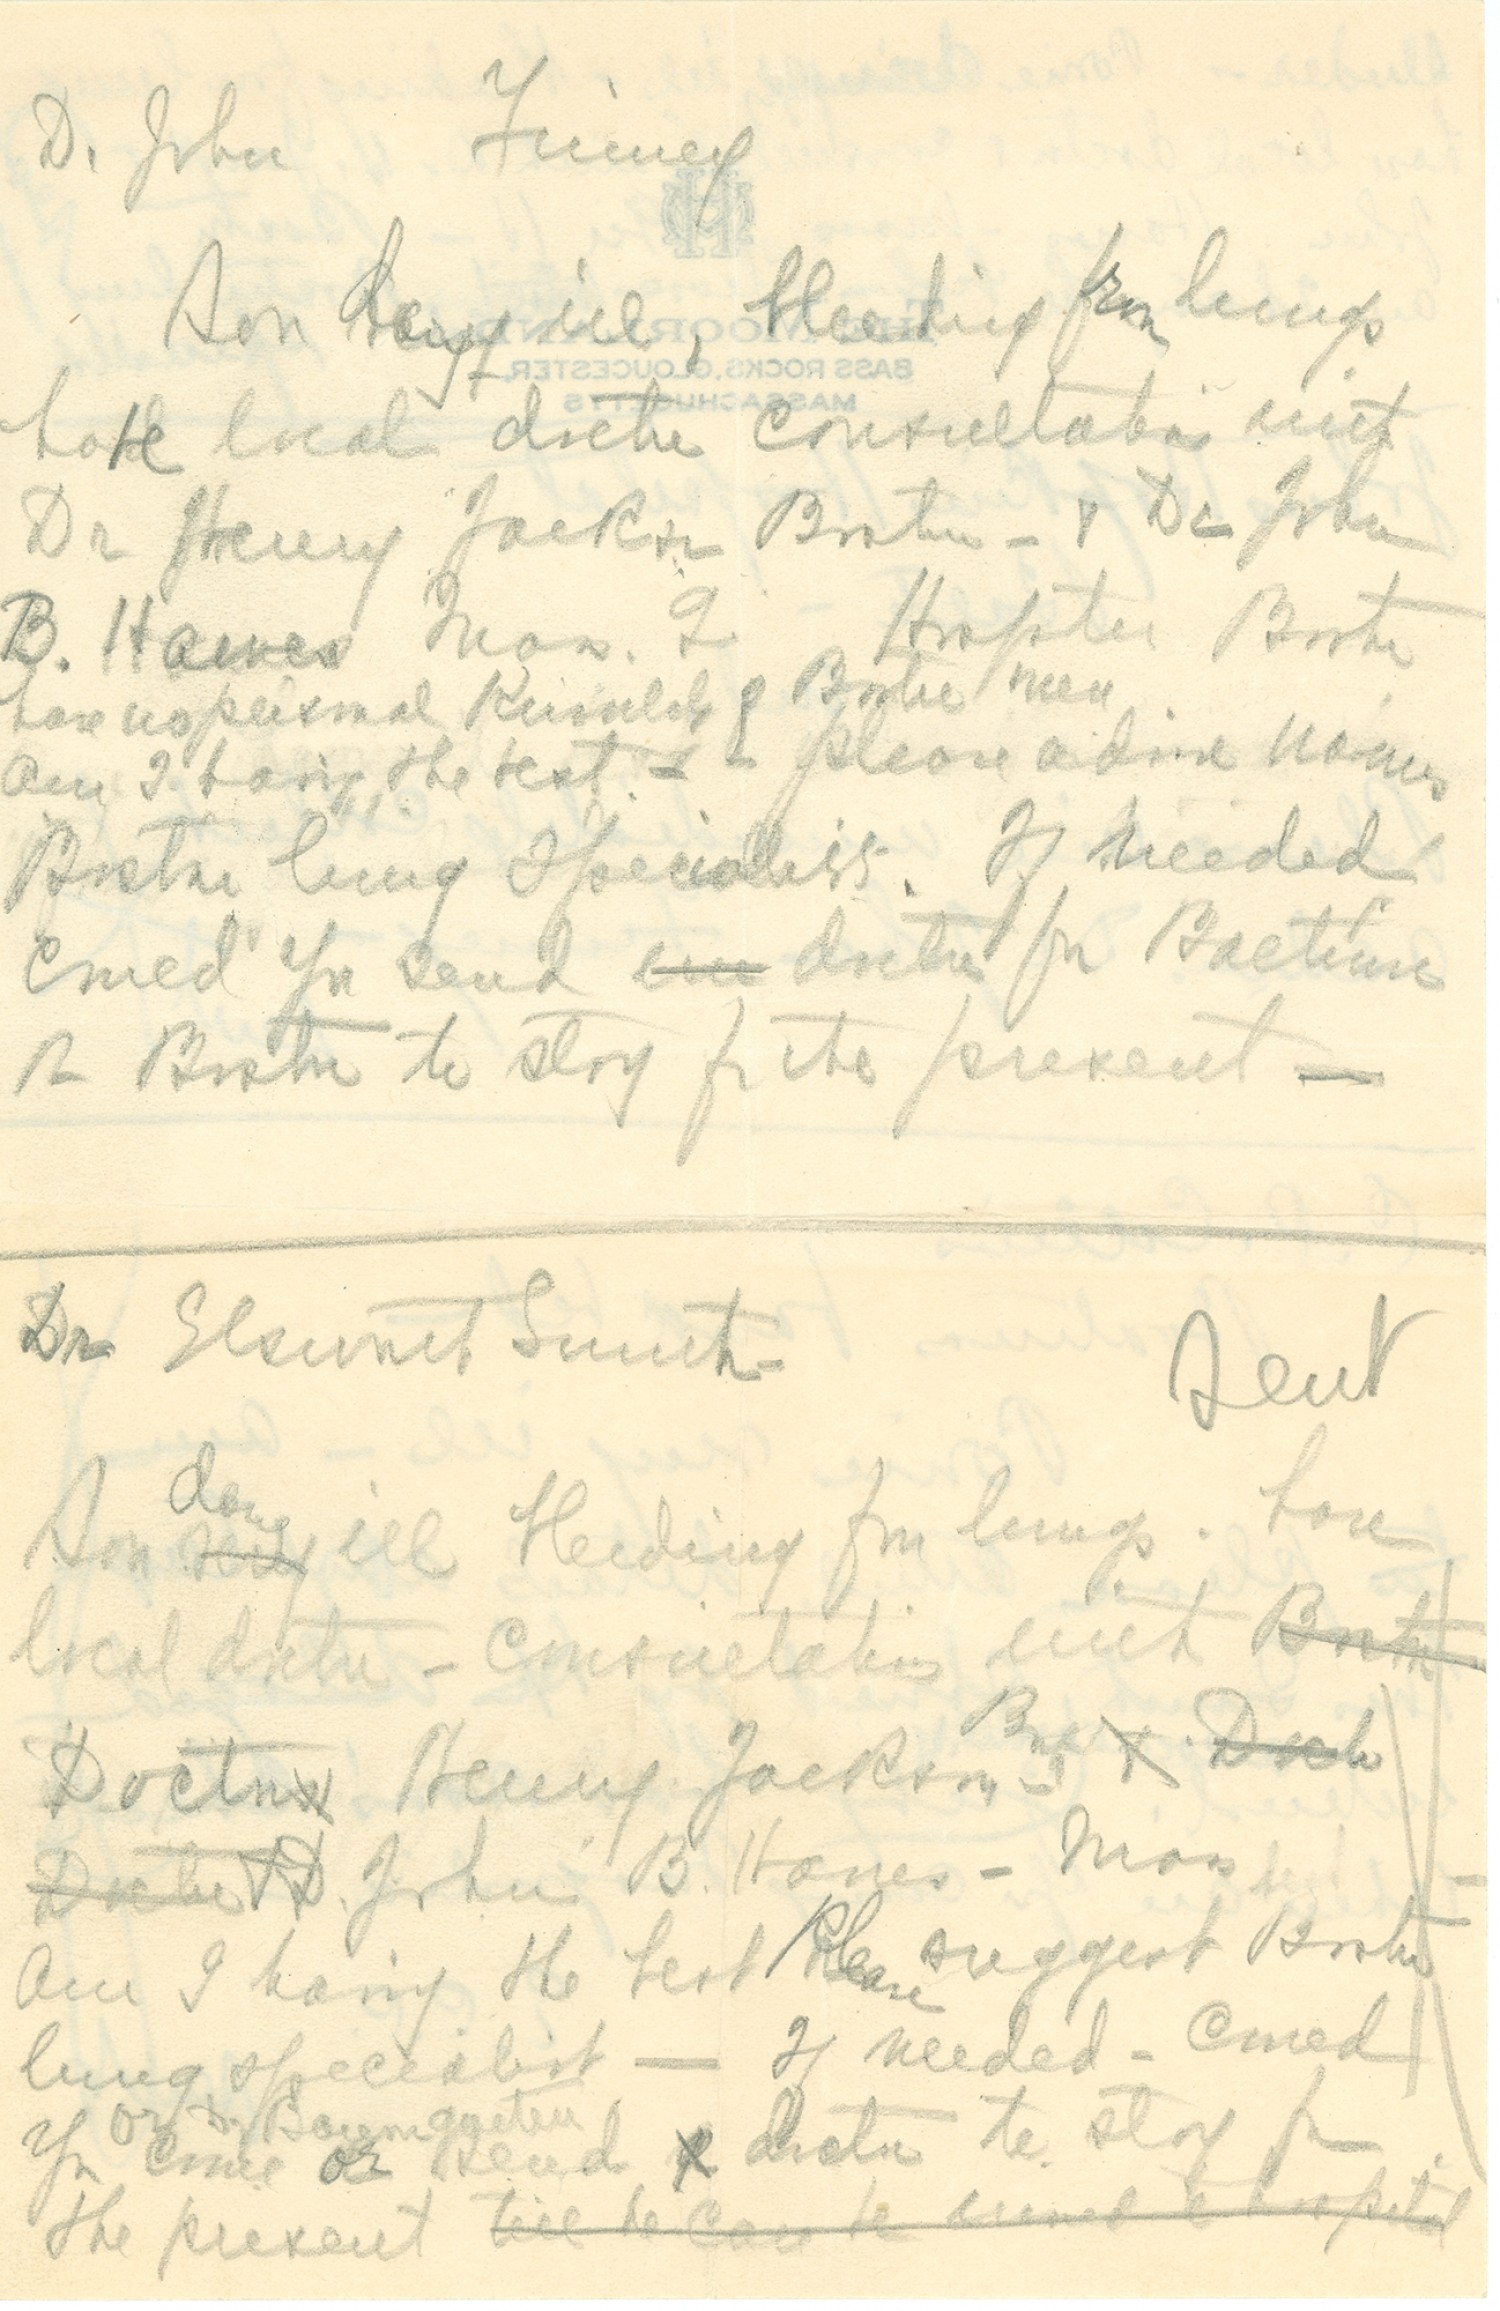 D. John Finney
Son dang ill, bleeding from lungs
have local doctor consultation with
Dr Henry Jackson Boston - & Dr John
B. Hawes Mass. G Hospital Boston
have no personal knowledge of Boston men
am I having the best - please advise names
Boston lung specialists. If needed
could you send one doctor from Baltimore
or Boston to stay for the present -
THE MOORLAND
BASS ROCKS, GLOUCESTER,
MASSACHUSETTS
Dr Elsworth Smith -
Sent
Son very dang ill bleeding from lungs. have
local doctor - consultation with Boston
Doctor Henry Jackson Bos & Doctor
Doctor & D. John B. Hawes - Mass -
am I having the best Please suggest Boston
lung specialist - If needed - could
you or Dr Baumgarten come or send a doctor to stay for
the present till he can be moved to hospital